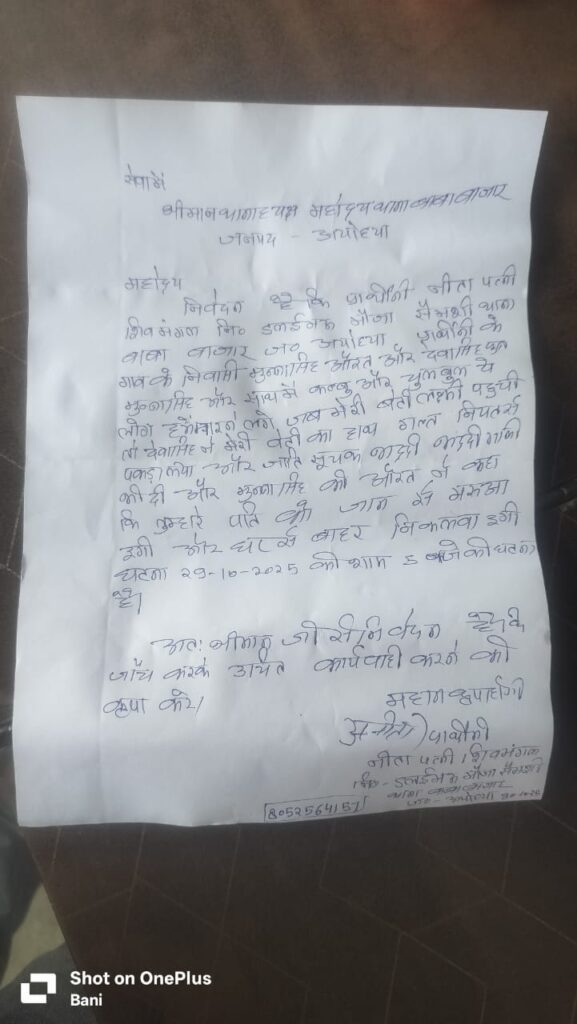 सेवा में
श्रीमान थानाध्यक्ष महोदय थाना बाबा बाजार
जनपद - अयोध्या
महोदय
निवेदन है कि प्रार्थीनी नीता पत्नी
शिवमंगल नि० मौजा सैमशी थाना
बाबा बाजार जि० अयोध्या प्रार्थीनी के
गाव के निवासी मुन्नासिंह औरत और देवासिंह पुत्र
मुन्नासिंह और साथ में कल्लू और चुलबुल ये
लोग हमें मारने लगे जब मेरी बेटी लक्ष्मी पहुची
तो देवासिंह ने मेरी बेटी का हाथ गलत नियत से
पकड़ लिया और जाति सूचक भद्दी भद्दी गाली
की दी और मुन्नासिंह की औरत ने कहा
कि तुम्हारे पति को जान से मरुआ
दुगी और घर से बाहर निकलवा दुगी
घटना 29-10-2025 की शाम 5 बजे की घटना
है।
अतः श्रीमान जी से निवेदन है कि
जाँच करके उचित कार्यवाही करने की
कृपा करे।
महान कृपा होगी
प्रार्थीनी
नीता पत्नी शिवमंगल
नि०- मौजा सैमशी
थाना बाबा बाजार
जि०- अयोध्या
8052564157
Shot on OnePlus
Bani